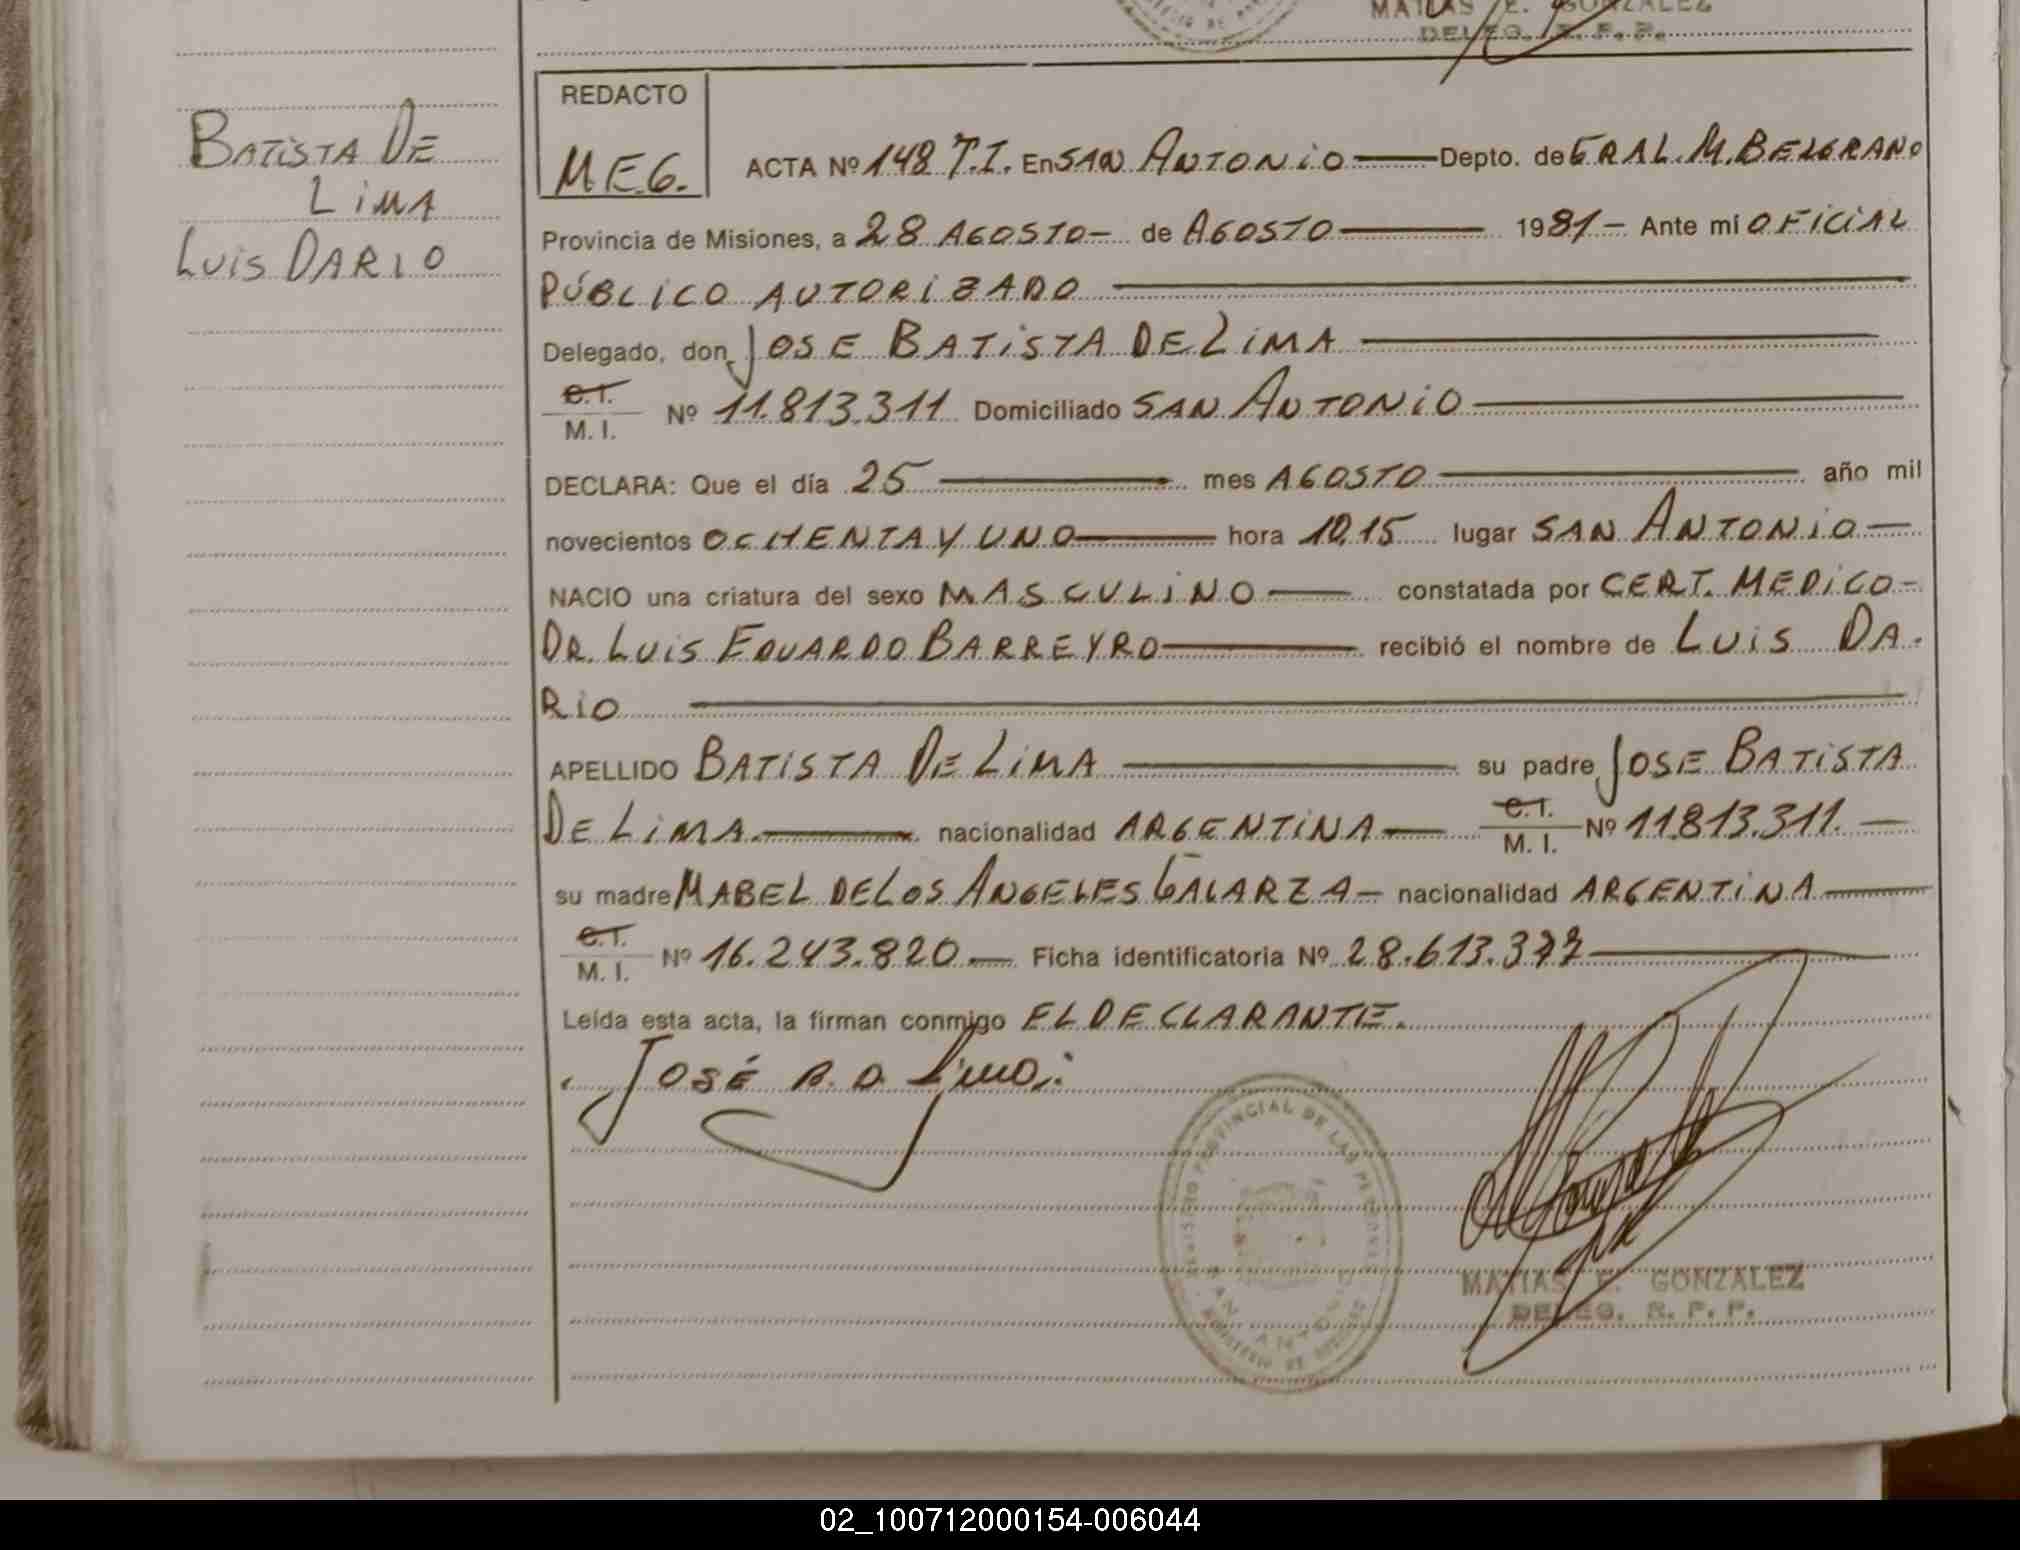 MATIAS E. GONZALEZ
DELEG. R. P. P.
BATISTA DE
LIMA
LUIS DARIO
REDACTO
MEG.
ACTA Nº 148 T.I. En SAN ANTONIO Depto. de GRAL. M. BELGRANO
Provincia de Misiones, a 28 AGOSTO- de AGOSTO 1981- Ante mí OFICIAL
PÚBLICO AUTORIZADO
Delegado, don JOSE BATISTA DE LIMA
C.I.
M. I. Nº 11.813.311 Domiciliado SAN ANTONIO
DECLARA: Que el día 25 mes AGOSTO año mil
novecientos OCHENTA Y UNO hora 10,15 lugar SAN ANTONIO
NACIO una criatura del sexo MASCULINO constatada por CERT. MEDICO-
DR. LUIS EDUARDO BARREYRO recibió el nombre de LUIS DA-
RIO
APELLIDO BATISTA DE LIMA su padre JOSE BATISTA
DE LIMA nacionalidad ARGENTINA C.I.
M. I. Nº 11.813.311.
su madre MABEL DE LOS ANGELES GALARZA nacionalidad ARGENTINA
C.I.
M. I. Nº 16.243.820 Ficha identificatoria Nº 28.613.377
Leída esta acta, la firman conmigo EL DECLARANTE.
JOSÉ B. D. Lima
REGISTRO PROVINCIAL DE LAS PERSONAS
SAN ANTONIO
MINISTERIO DE GOBIERNO
MATIAS E. GONZALEZ
DELEG. R. P. P.
02_100712000154-006044